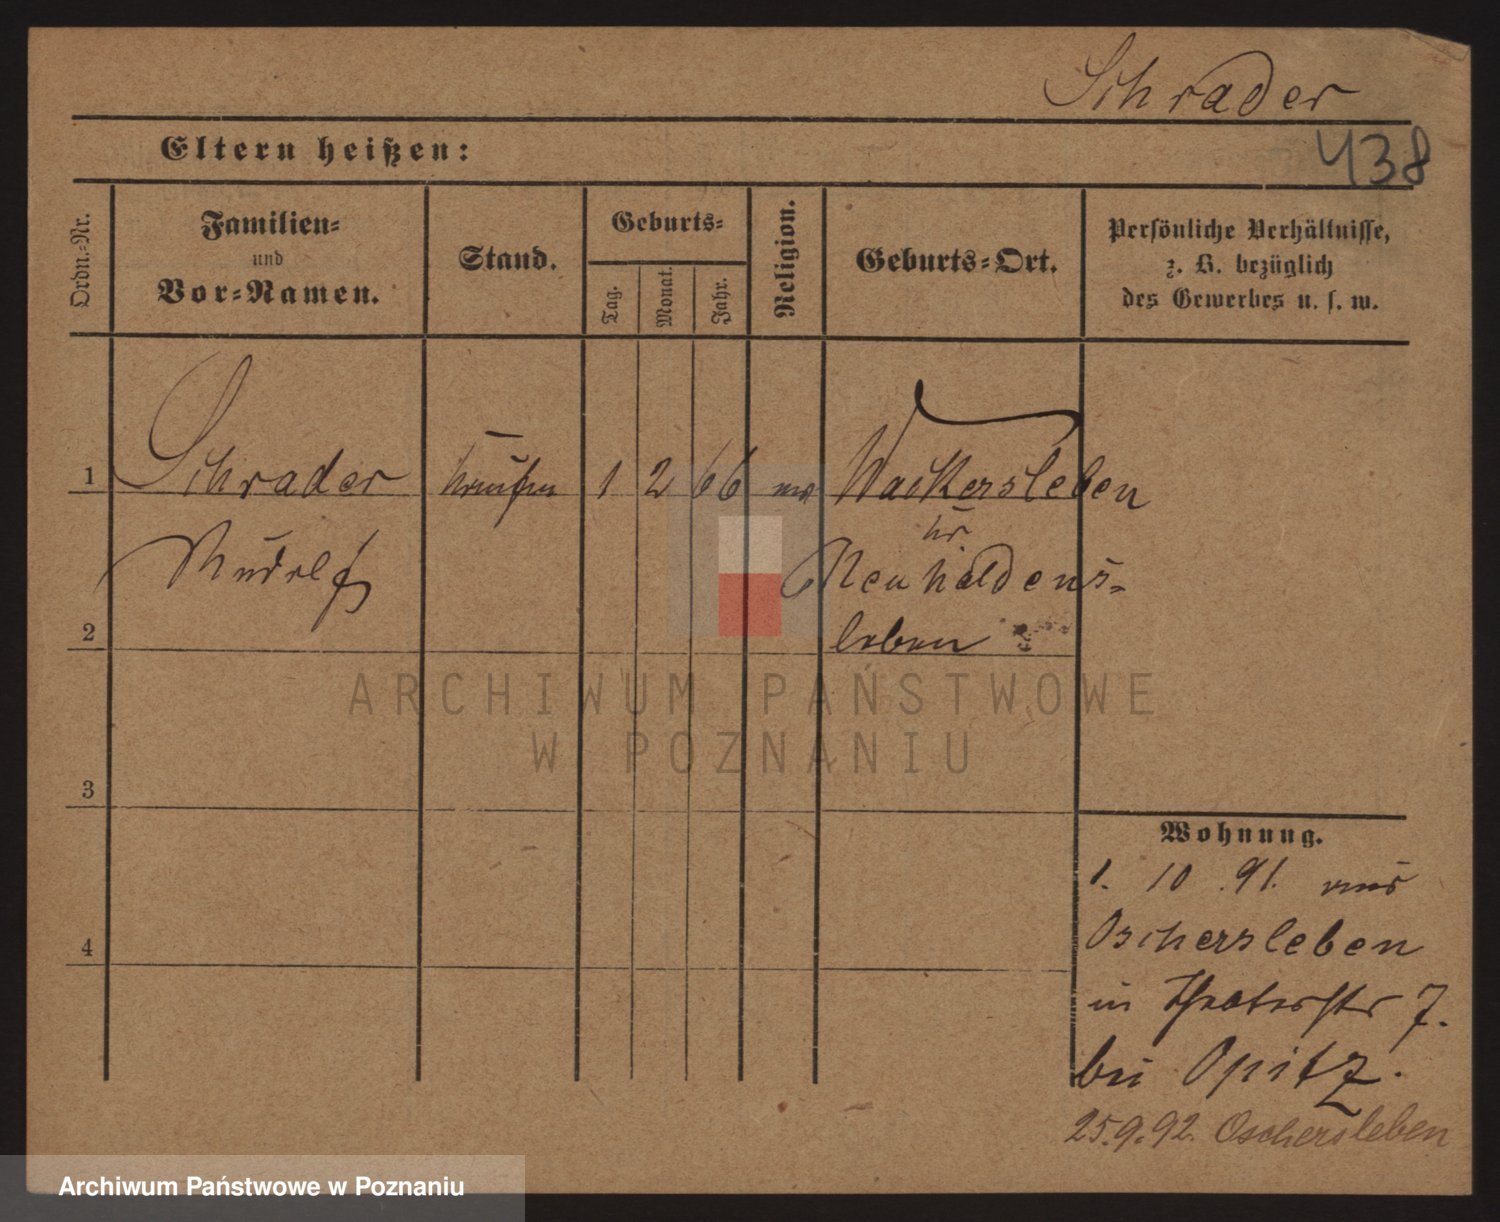 Schrader
Eltern heißen:
438
Ordn.-Nr.
Familien-
und
Vor-Namen.
Stand.
Geburts-
Tag.
Monat.
Jahr.
Religion.
Geburts-Ort.
Persönliche Verhältnisse,
z. B. bezüglich
des Gewerbes u. s. w.
1 Schrader 1 2 66 Wackersleben
Kr.
Rudolf Neuhaldens-
2 leben
ARCHIWUM PAŃSTWOWE
W POZNANIU
3
Wohnung.
1. 10 .91. aus
4 Oschersleben
in Theaterstr 7.
bei Opitz.
25.9.92. Oschersleben
Archiwum Państwowe w Poznaniu